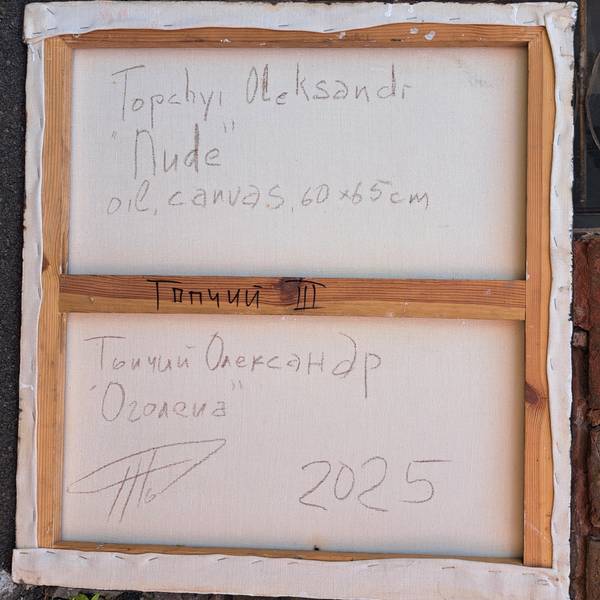 Topchyi Oleksandr
"Nude"
oil, canvas, 60x65cm
Топчий III
Топчий Олександр
"Оголена"
2025